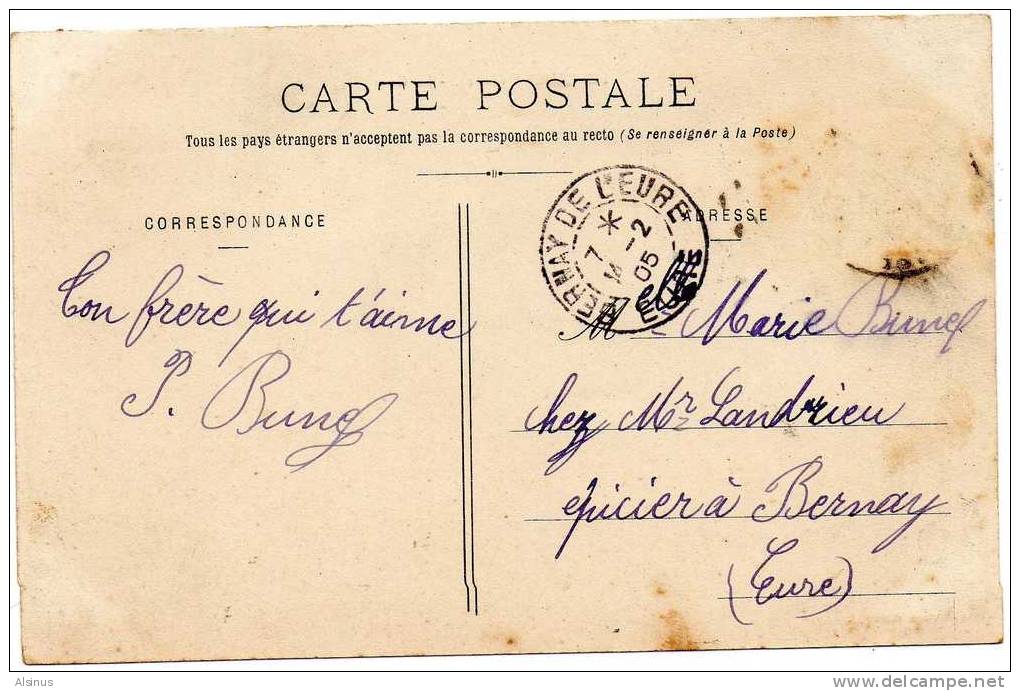 CARTE POSTALE
Tous les pays étrangers n'acceptent pas la correspondance au recto (Se renseigner à la Poste)
CORRESPONDANCE
ADRESSE
BERNAY DE L'EURE
7 *
14 -2
05
EURE
Ton frère qui t'aime
P. Bunel
Marie Bunel
chez Mr Landrieu
épicier à Bernay
(Eure)
Alsinus
delcampe.net